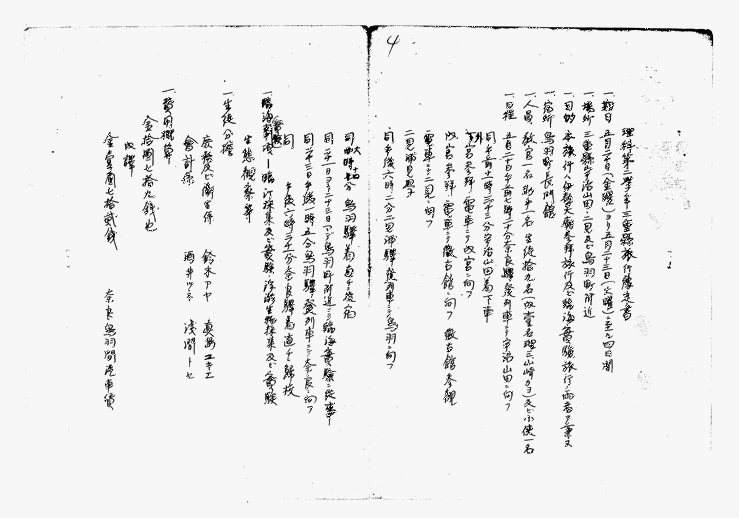 4
理科第二學年三重縣旅行豫定書
一、期日 五月二十日(金曜)ヨリ五月二十三日(火曜)ニ至ル四日間
一、場所 三重縣宇治山田、二見及ビ鳥羽町附近
一、目的 本旅行ハ伊勢大廟參拜旅行及ビ臨海實驗旅行ノ兩者ヲ兼ヌ
一、宿所 鳥羽町長門館
一、人員 教官一名 助手一名 生徒拾九名(内壹名理三山崎カヨ)及ビ小使一名
一、日程 五月二十日午前七時二十分奈良驛發列車ニテ宇治山田ニ向フ
同午前十一時二十三分宇治山田着下車
外宮參拜 電車ニテ内宮ニ向フ
内宮參拜、電車ニテ徴古館ニ向フ 徴古館參觀
電車ニテ二見ニ向フ
二見見學
同午後六時二分二見浦驛發列車ニテ鳥羽ニ向フ
同六時十四分 鳥羽驛着直チニ投宿
同二十一日ヨリ二十三日マデ鳥羽町附近ニテ臨海實驗ニ從事
同二十三日午後一時五分鳥羽驛發列車ニテ奈良ニ向フ
同 午後六時三十一分奈良驛着直チニ歸校
一、臨海實驗事項 臨汀採集及ビ實驗、浮游生物採集及ビ實驗
生態觀察等
一、生徒分擔
庶務及ビ衞生係 鈴木アヤ 眞島ユキエ
會計係 酒井ツネ 淺間トセ
一、費用概算
金拾圓七拾九錢也
内譯
金壹圓七拾貳錢 奈良鳥羽間汽車賃